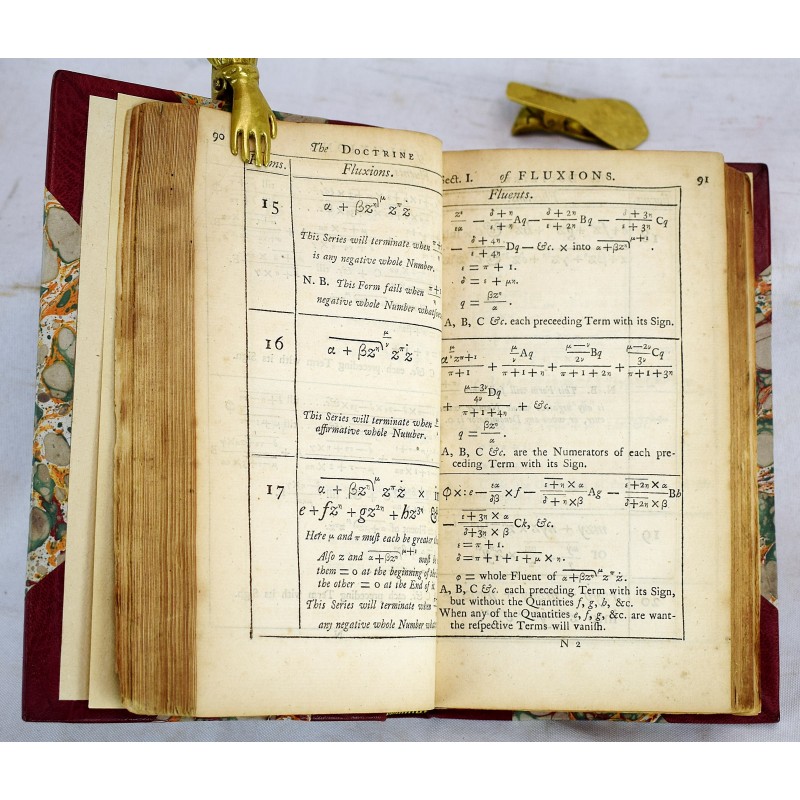 90
The DOCTRINE
Fluxions.
15
α + βzⁿ)^μ z^π ż
This Series will terminate when
is any negative whole Number.
N. B. This Form fails when π+1
negative whole Number
16
α + βzⁿ)^(μ/ν) z^π ż
This Series will terminate when
affirmative whole Number.
17
α + βzⁿ)^μ z^π ż ×
e + fzⁿ + gz²ⁿ + hz³ⁿ
Here μ and π must each be greater
Also z and α+βzⁿ)^(μ+1) must
them = 0 at the beginning of the
the other = 0 at the End of
This Series will terminate when
any negative whole Number
Sect. I. of FLUXIONS. 91
Fluents.
− (∂+n)/(ε+n) Aq − (∂+2n)/(ε+2n) Bq − (∂+3n)/(ε+3n) Cq
− (∂+4n)/(ε+4n) Dq − &c. × into α+βzⁿ)^(μ+1).
ε = π + 1.
∂ = ε + μn.
q = βzⁿ/α .
A, B, C &c. each preceeding Term with its Sign.
z^(π+1)/(π+1) + (μ/ν)Aq/(π+1+n) + ((μ−ν)/2ν)Bq/(π+1+2n) + ((μ−2ν)/3ν)Cq/(π+1+3n)
+ ((μ−3ν)/4ν)Dq/(π+1+4n) + &c.
q = βzⁿ/α .
A, B, C &c. are the Numerators of each pre-
ceding Term with its Sign.
φ×: e − εα/∂β × f − (ε+n × α)/(∂+n × β) Ag − (ε+2n × α)/(∂+2n × β) Bh
− (ε+3n × α)/(∂+3n × β) Ck, &c.
ε = π + 1.
∂ = π + 1 + 1+μ × n.
φ = whole Fluent of α+βzⁿ)^μ z^π ż.
A, B, C &c. each preceding Term with its Sign,
but without the Quantities f, g, h, &c.
When any of the Quantities e, f, g, &c. are want-
the respective Terms will vanish.
N 2